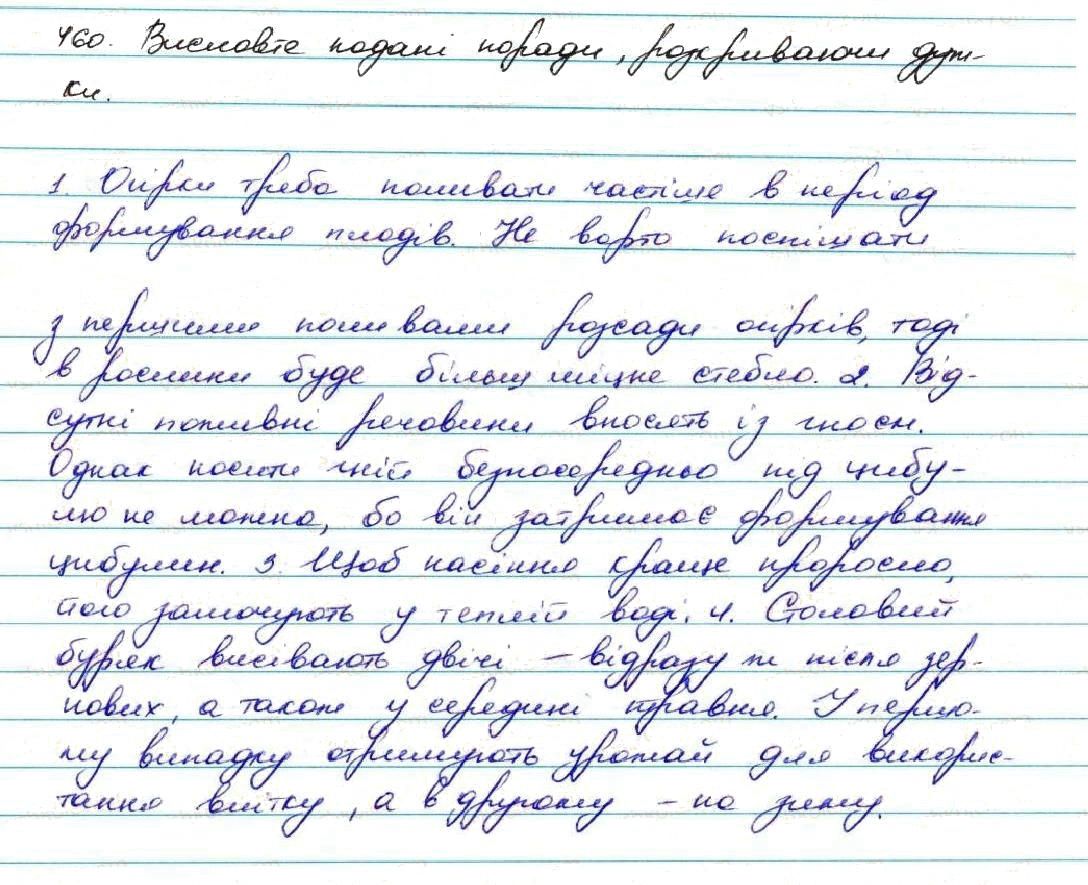 460. Висловте подані поради, розкриваючи дуж-
ки.
1. Огірки треба поливати частіше в період
формування плодів. Не варто поспішати
з першими поливами розсади огірків, тоді
в рослини буде більш міцне стебло. 2. Від-
сутні поживні речовини вносять із гноєм.
Однак носити гній безпосередньо під цибу-
лю не можна, бо він затримає формування
цибулин. 3. Щоб насіння краще проросло,
його замочують у теплій воді. 4. Столовий
буряк висівають двічі – відразу ж після зер-
нових, а також у середині травня. У першо-
му випадку отримують урожай для викорис-
тання влітку, а в другому – на зиму.